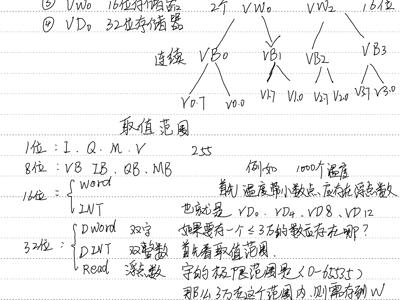 ③ VW0 16位存储器 2个 VW0 VW2 16位
④ VD0 32位存储器
连续 VB0 VB1 VB2 VB3
V0.7 V0.0 V1.7 V1.0 V2.7 V2.0 V3.7 V3.0
取值范围
1位：I．Q．M．V 255
8位：VB IB．QB．MB 例如 1000个温度
16位：{ word 首先温度带小数点，应存在浮点数
INT 也就是 VD0．VD4．VD8．VD12
32位：{ Dword 双字 如果要有一个≤3万的数应存在哪？
DINT 双整数 首先看取值范围．
Read 浮点数 字的极限范围是（0-65535）
那么3万在这个范围内，则需存到W